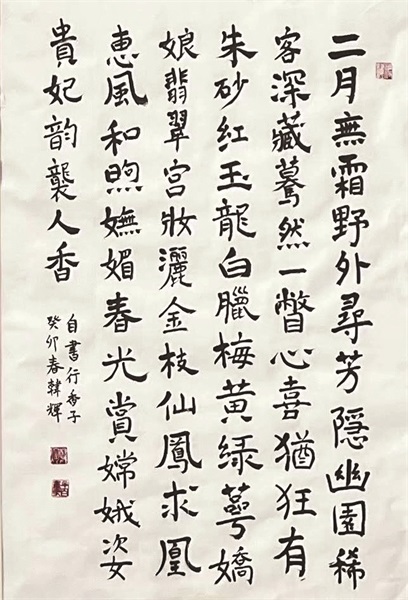 二月無霜野外尋芳隱幽園稀
客深藏驀然一瞥心喜猶狂有
朱砂紅玉龍白臘梅黃綠萼嬌
娘翡翠宮妝灑金枝仙鳳求凰
惠風和煦嫵媚春光賞嫦娥姿
貴妃韵襲人香
自書行香子
癸卯春韓輝